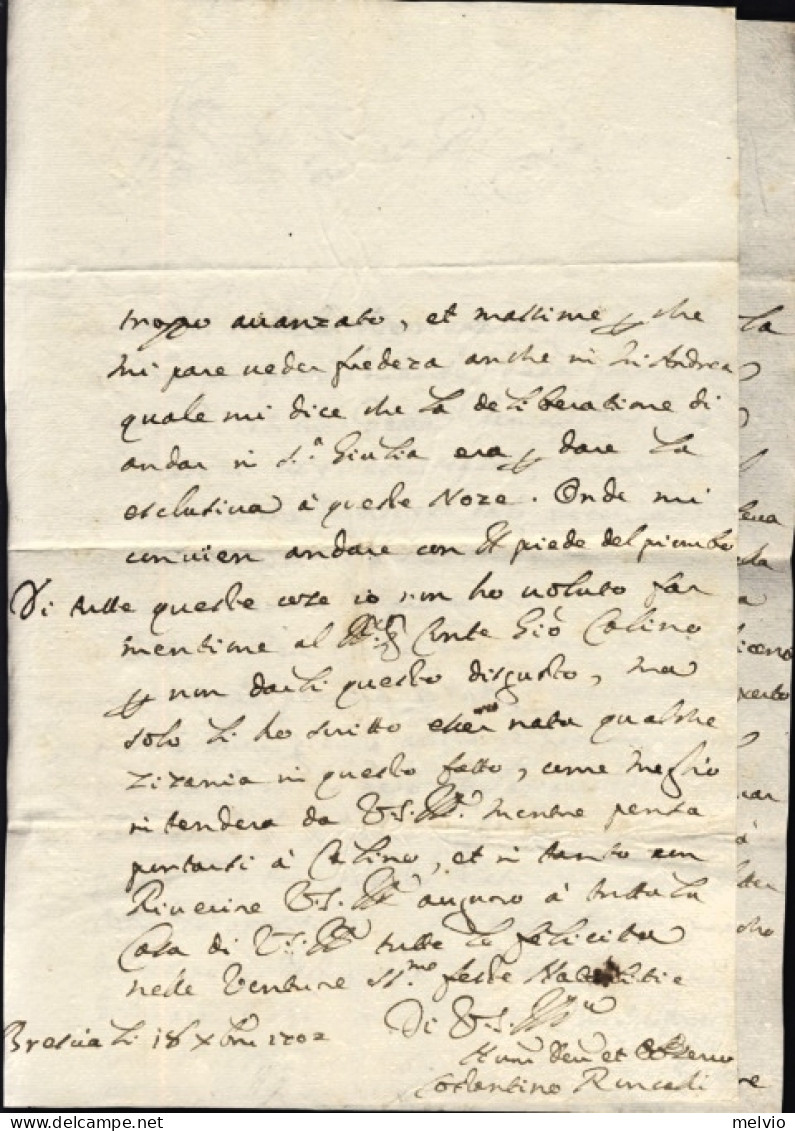 troppo auanzato, et massime che
mi pare ueder fredeza anche in Andrea
quale mi dice che la deliberatione di
andar in S.ª Giulia era dare la
esclusiua à queste Noze. Onde mi
conuien andare con il piede del piombo
Di tutte queste cose io non ho uoluto far
mentione al Conte Giò Calino
non darli questo disgusto, ma
solo li ho scritto esser nata qualche
zizania in questo fatto, come meglio
intenderà da V.S. Ill.ª mentre pensa
portarsi à Calino, et in tanto con
Riuerire V.S. Ill.ª auguro à tutta la
Casa di V.S. Ill.ª tutte le felicità
nelle Venture SS.me feste Natalitie
Di V.S. Ill.ª
Brescia li 18 Xbre 1702
Hum Deu et Seruo
la
seua
à
re
melvio